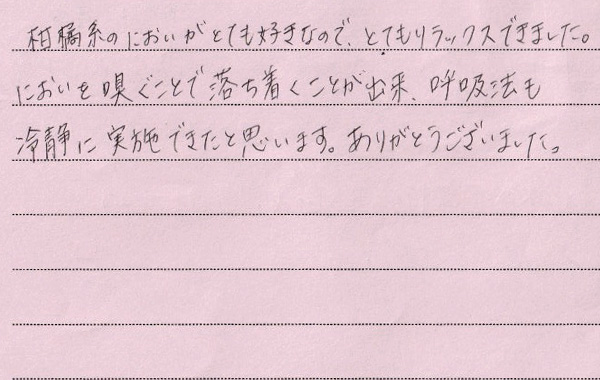 柑橘系のにおいがとても好きなので、とてもリラックスできました。
においを嗅ぐことで落ち着くことが出来、呼吸法も
冷静に実施できたと思います。ありがとうございました。